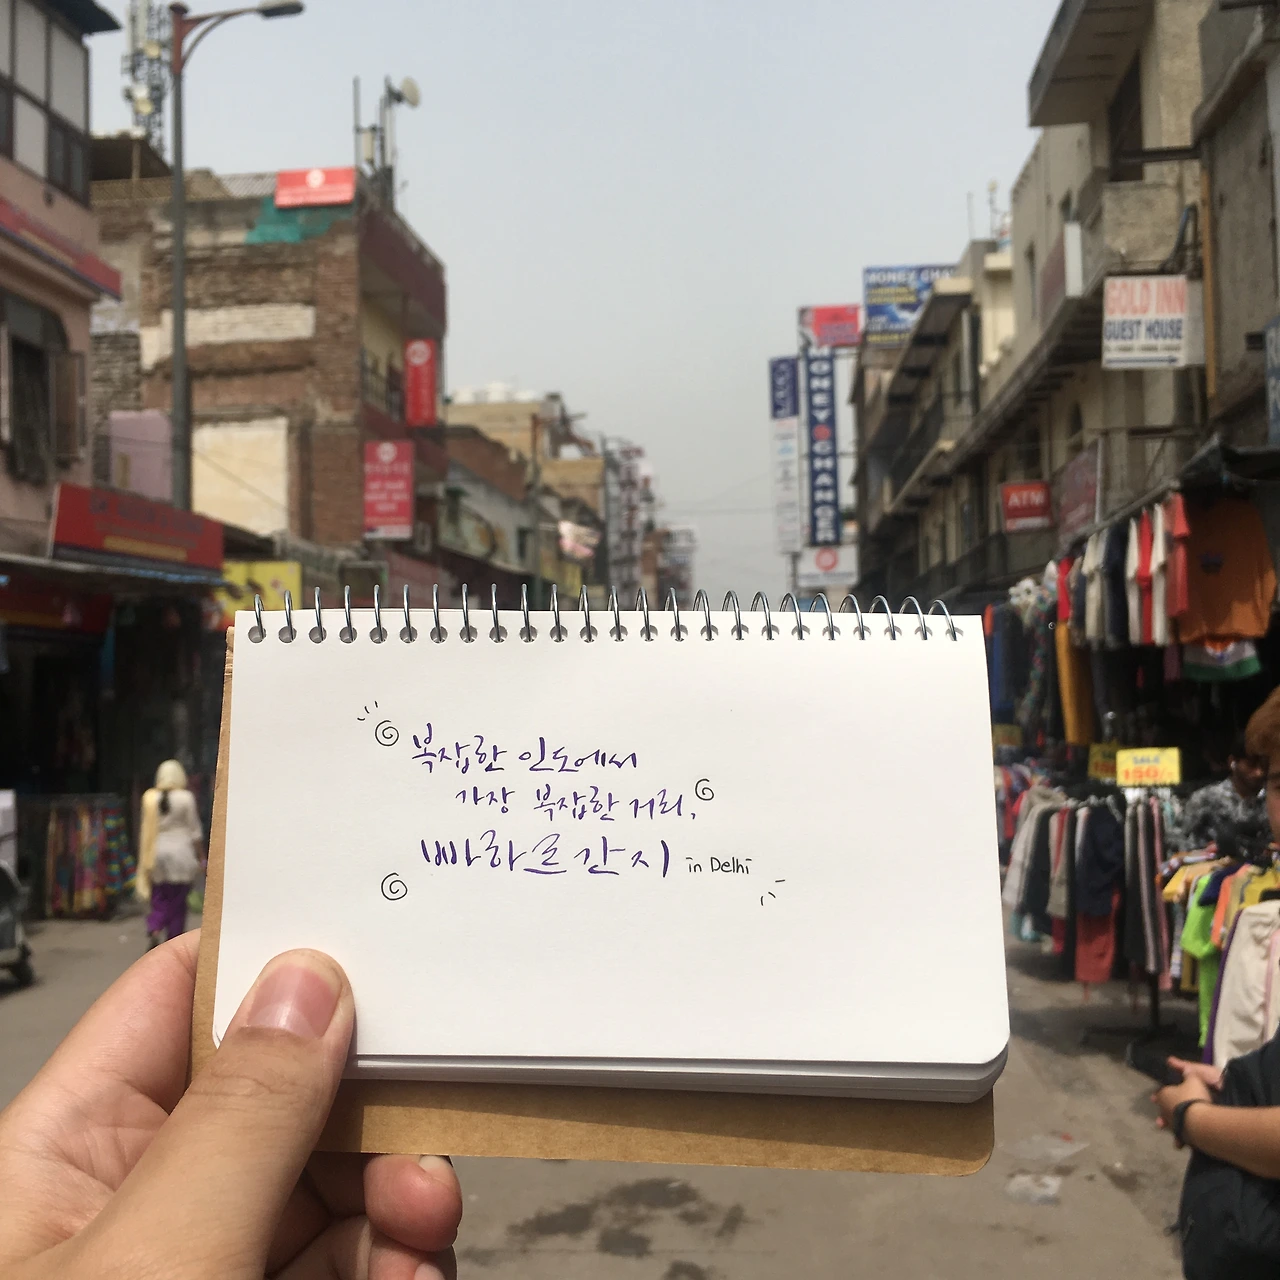 복잡한 인도에서
가장 복잡한 거리,
빠하르간지 in Delhi
MONEY CHA
MONEY CHANGER
GOLD INN
GUEST HOUSE
ATM
SALE
150/-